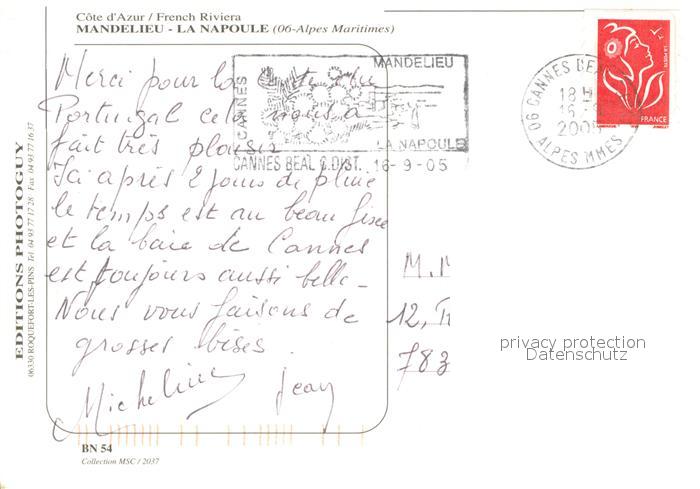 Côte d'Azur / French Riviera
MANDELIEU - LA NAPOULE (06-Alpes Maritimes)
Merci pour la carte du
Portugal cela nous a
fait très plaisir
Ici après 2 jours de pluie
le temps est au beau fixe
et la baie de Cannes
est toujours aussi belle -
Nous vous faisons de
grosses bises.
Micheline Jean
CANNES
MANDELIEU
LA NAPOULE
CANNES BEAL C.DIST. 16-9-05
06 CANNES BEAL
18 H
16-9
2005
ALPES MMES
LA POSTE
FRANCE
M. M
12,
783
privacy protection
Datenschutz
EDITIONS PHOTOGUY
06330 ROQUEFORT-LES-PINS Tél 04 93 77 17 28 Fax 04 93 77 16 37
BN 54
Collection MSC / 2037